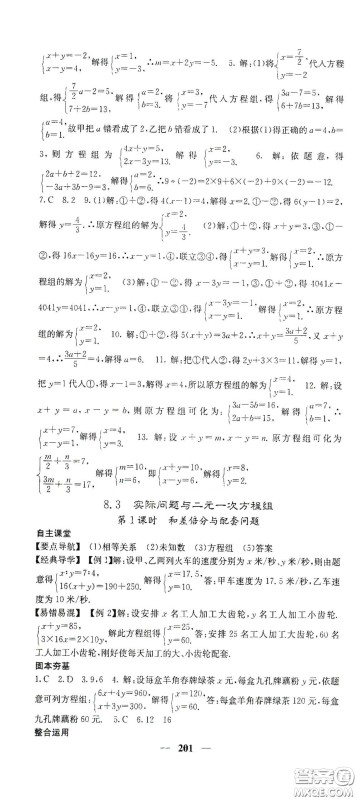 {x+y=-2, x-y=4, 解得{x=1, y=-3. ∴m=x+2y=-5. 5. 解:(1)将{x=7/2, y=-2 代入方程
组,得{7/2a-2=5, 7+2b=13, 解得{a=2, b=3. 将{x=3, y=-7 代入方程组,得{3a-7=5, 6+7b=13, 解得
{a=4, b=1. 故甲把a看成了2,乙把b错看成了1. (2)根据(1)得正确的a=4,b=
3,则方程组为{4x+y=5, 2x-3y=13. 6. 解:依题意,得
{2a+b+2=12, -3a+3b-9=-3, ∴9*(-2)=2×9+6×(-2)-18=-12.
7. C 8. 2 9. (1)解:①+②,得4(x-1)=4,解得x=2. ①-②,得6(y-1)=2,
解得y=4/3. ∴原方程组的解为{x=2, y=4/3. (2)解:①+②,得x+y=3,③①-
②,得16x-16y=16,∴x-y=1,④,联立③④,得{x+y=3, x-y=1, 解得{x=2, y=1. ∴原方程
组的解为{x=2, y=1. (3)解:②-①,得x-y=1,③①-②×③,得4041x-
4041y=4041,∴x-y=1,④联立③④,得{x+y=3, x-y=1. 解得{x=2, y=1. ∴原方程
组的解为{x=2, y=1. 10. 解:①+②,得5(x+y)=3a+2,∴x+y=(3a+2)/5,又x+y
=4,∴(3a+2)/5=4,解得a=6. 11. 解:把①代入②,得2y+3×3=11.解得y=1.
把y=1代入①,得x-1=3,解得x=4,所以原方程组的解为{x=4, y=1. 12. 解:设
x+y=a,x-y=b,则原方程组可化为:{3a-5b=16, 2a+3b=17, 解得{a=7, b=1,
{x+y=7, x-y=1, 解得{x=4, y=3. 13. 解:设x+y=m,x-y=n. 原方程组可化为:
{m/2+n/3=7, 3m/2+n/2=17, 解得{m=10, n=6, 即{x+y=10, x-y=6, 解得{x=8, y=2.
8.3 实际问题与二元一次方程组
第1课时 和差倍分与配套问题
自主课堂
【要点导航】 (1)相等关系 (2)未知数 (3)方程组 (5)答案
【经典导学】【例1】解:设甲、乙两列火车的速度分别为x米/秒、y米/秒,则由题
意得{x:y=7:4, 16(x+y)=190+250. 解得{x=17.5, y=10. 答:甲车速度为17.5米/秒,乙车速
度为10米/秒.
【易错易混】【例2】解:设安排x名工人加工大齿轮,y名工人加工小齿轮.
{x+y=85, 3×16x=2×10y. 解此方程组得{x=25, y=60. 答:安排25名工人加工大齿轮,60名
工人加工小齿轮,刚好使每天加工的大、小齿轮配套.
固本夯基
1. C 2. D 3. 9,6 4. 解:设每盒羊角春牌绿茶x元,每盒九孔牌藕粉y元,依题
意可列方程组:{6x+4y=960, x+3y=300. 解得{x=120, y=60. 答:每盒羊角春牌绿茶120元,每盒
九孔牌藕粉60元. 5. C 6. 12 16
整合运用
— 201 —
答案圈